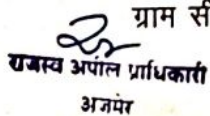 ग्राम सी
राजस्व अपील प्राधिकारी
अजमेर